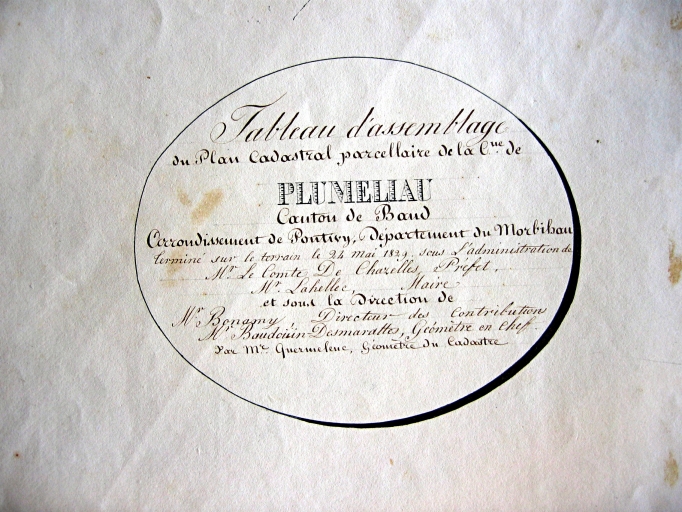 Tableau d'assemblage
du Plan Cadastral parcellaire de la Cne de
PLUMELIAU
Canton de Baud
Arrondissement de Pontivy, Département du Morbihan
terminé sur le terrain le 24 mai 1829, sous l'administration de
Mr. Le Comte De Chazelles, Préfet,
Mr. Lahellec, Maire
et sous la Direction de
Mr Bonamy, Directeur des Contributions
Mr. Baudouin-Desmarattes, Géomètre en Chef.
Par Mr. Quermeleuc, Géomètre du Cadastre